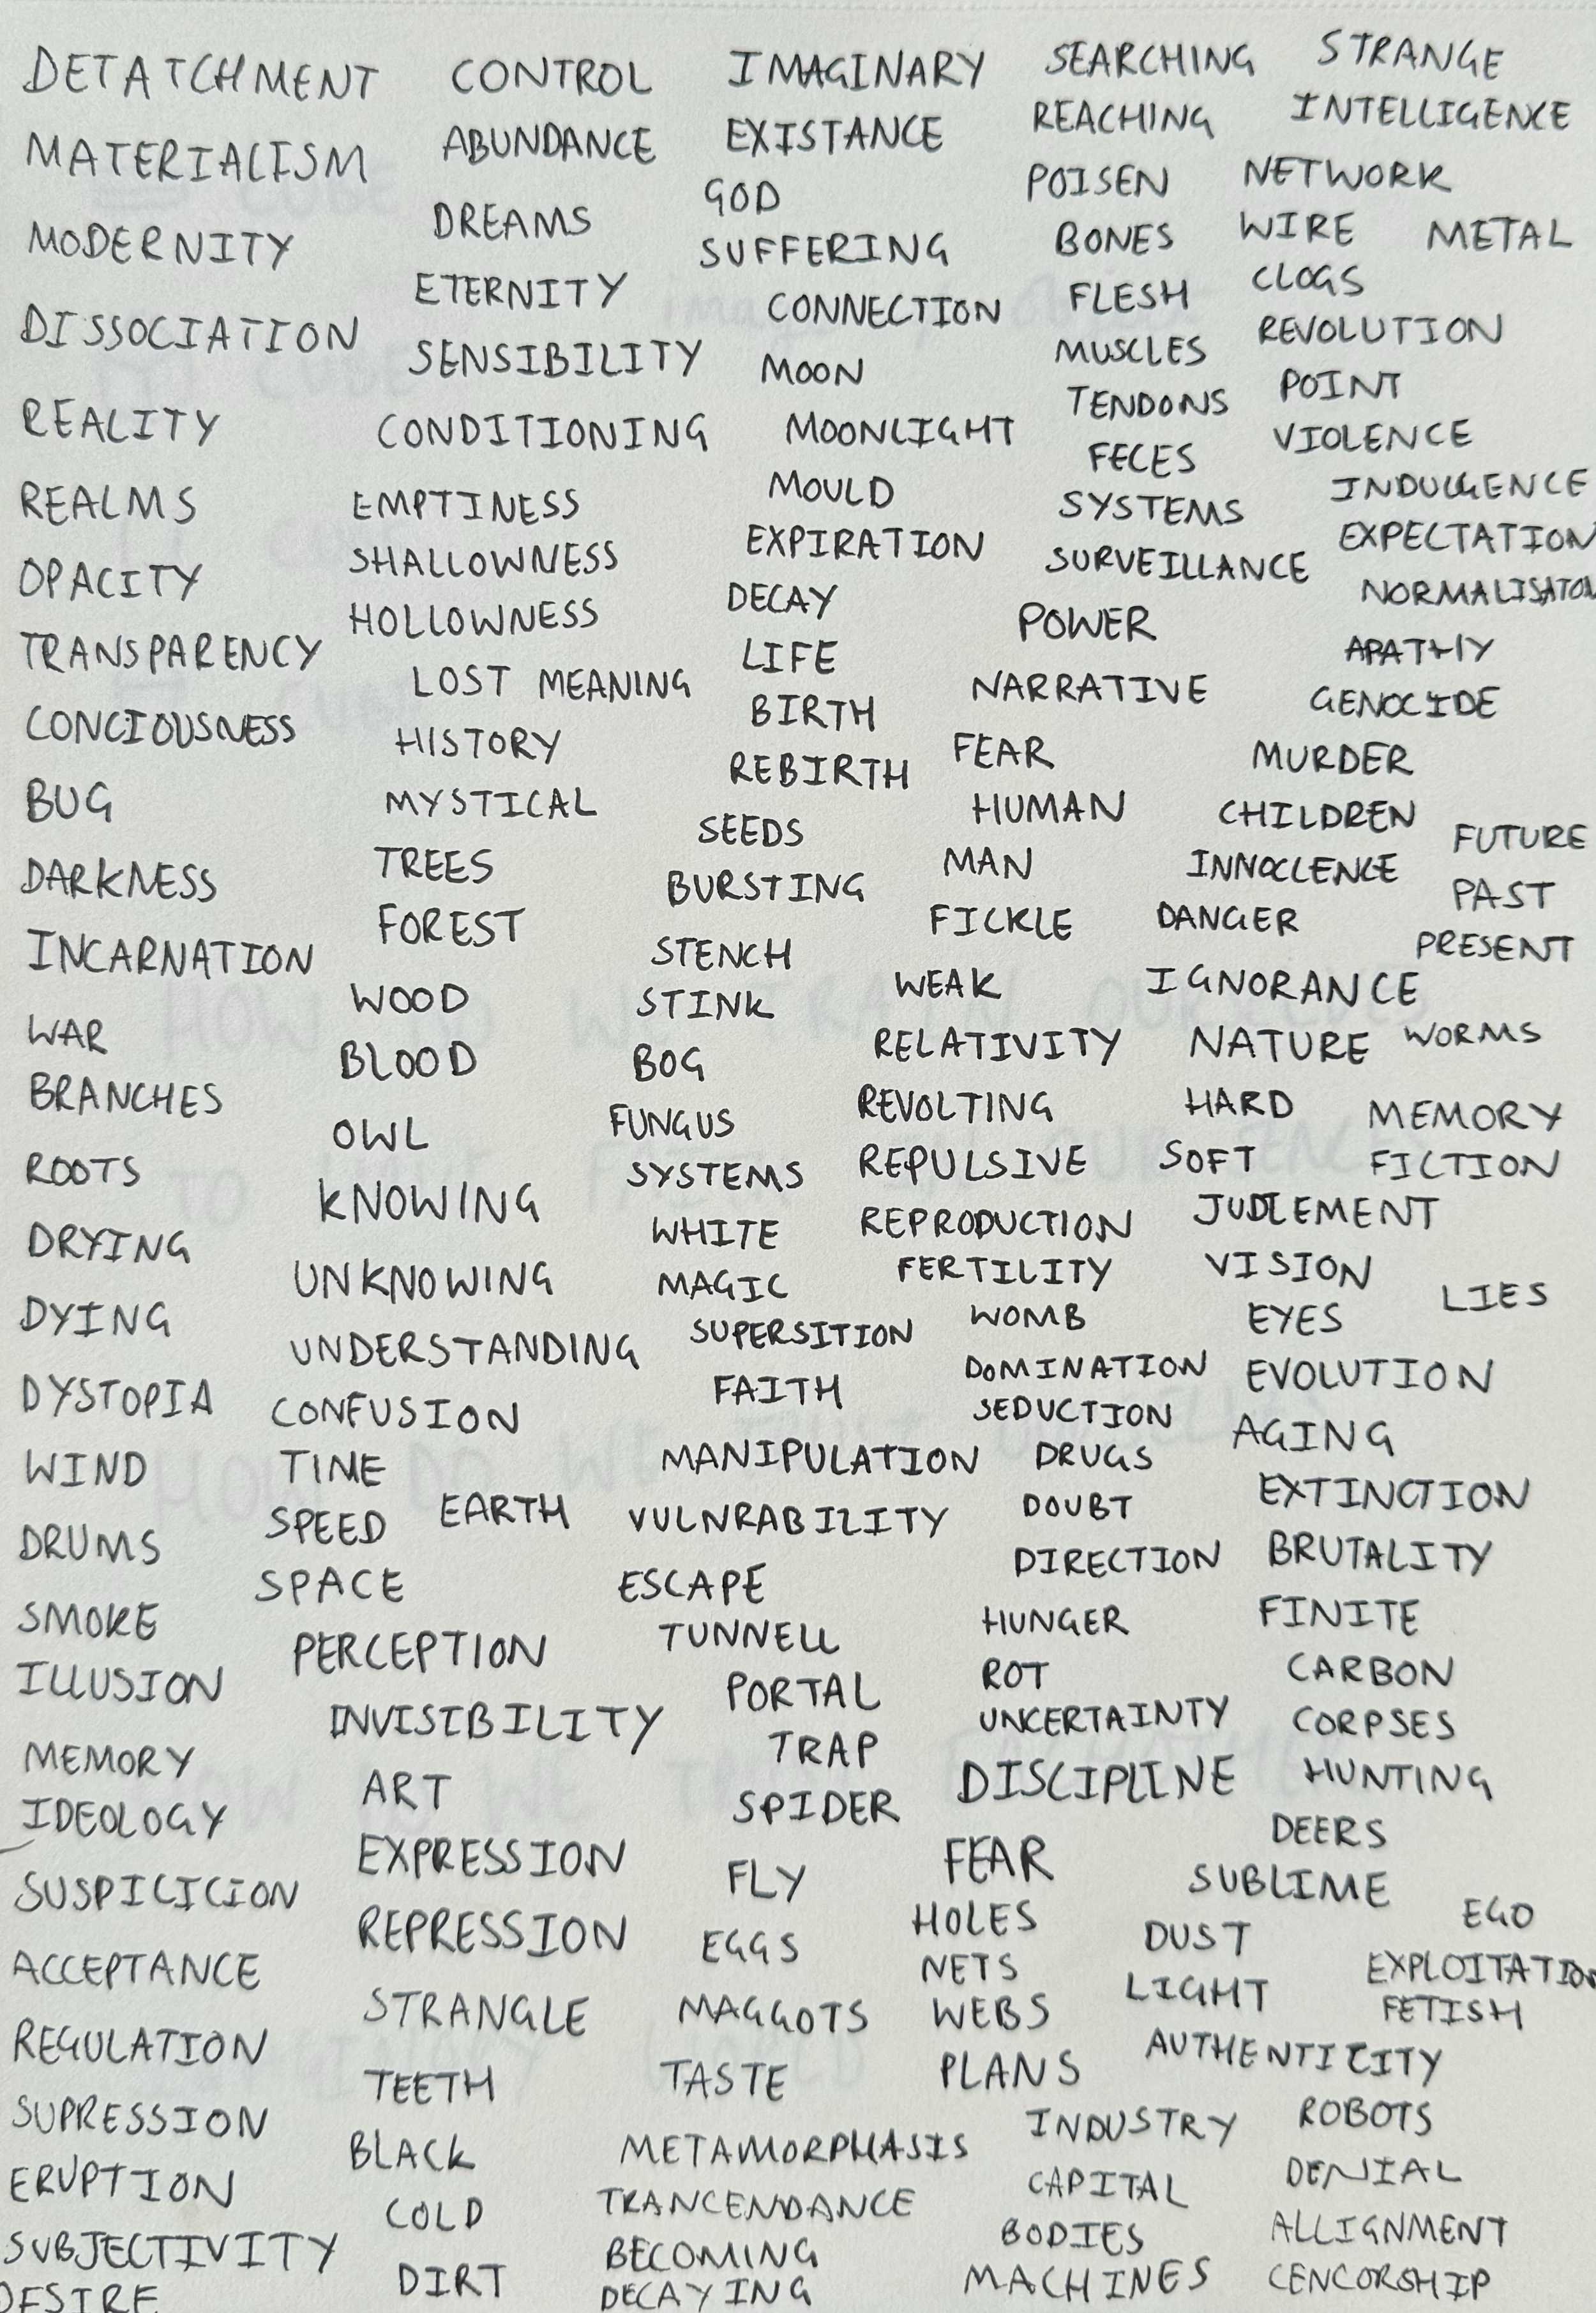 DETATCHMENT
MATERIALISM
MODERNITY
DISSOCIATION
REALITY
REALMS
OPACITY
TRANSPARENCY
CONCIOUSNESS
BUG
DARKNESS
INCARNATION
WAR
BRANCHES
ROOTS
DRYING
DYING
DYSTOPIA
WIND
DRUMS
SMOKE
ILLUSION
MEMORY
IDEOLOGY
SUSPICICION
ACCEPTANCE
REGULATION
SUPRESSION
ERUPTION
SUBJECTIVITY
DESIRE
CONTROL
ABUNDANCE
DREAMS
ETERNITY
SENSIBILITY
CONDITIONING
EMPTINESS
SHALLOWNESS
HOLLOWNESS
LOST MEANING
HISTORY
MYSTICAL
TREES
FOREST
WOOD
BLOOD
OWL
KNOWING
UNKNOWING
UNDERSTANDING
CONFUSION
TIME
SPEED
EARTH
SPACE
PERCEPTION
INVISIBILITY
ART
EXPRESSION
REPRESSION
STRANGLE
TEETH
BLACK
COLD
DIRT
IMAGINARY
EXISTANCE
GOD
SUFFERING
CONNECTION
MOON
MOONLIGHT
MOULD
EXPIRATION
DECAY
LIFE
BIRTH
REBIRTH
SEEDS
BURSTING
STENCH
STINK
BOG
FUNGUS
SYSTEMS
WHITE
MAGIC
SUPERSITION
FAITH
MANIPULATION
VULNRABILITY
ESCAPE
TUNNELL
PORTAL
TRAP
SPIDER
FLY
EGGS
MAGGOTS
TASTE
METAMORPHASIS
TRANCENDANCE
BECOMING
DECAYING
SEARCHING
REACHING
POISEN
BONES
FLESH
MUSCLES
TENDONS
FECES
SYSTEMS
SURVEILLANCE
POWER
NARRATIVE
FEAR
HUMAN
MAN
FICKLE
WEAK
RELATIVITY
REVOLTING
REPULSIVE
REPRODUCTION
FERTILITY
WOMB
DOMINATION
SEDUCTION
DRUGS
DOUBT
DIRECTION
HUNGER
ROT
UNCERTAINTY
DISCIPLINE
FEAR
HOLES
NETS
WEBS
PLANS
INDUSTRY
CAPITAL
BODIES
MACHINES
STRANGE
INTELLIGENCE
NETWORK
WIRE
METAL
CLOGS
REVOLUTION
POINT
VIOLENCE
INDULGENCE
EXPECTATION
NORMALISATON
APATHY
GENOCIDE
MURDER
CHILDREN
INNOCLENCE
DANGER
FUTURE
PAST
PRESENT
IGNORANCE
NATURE
WORMS
HARD
MEMORY
SOFT
FICTION
JUDLEMENT
VISION
LIES
EYES
EVOLUTION
AGING
EXTINCTION
BRUTALITY
FINITE
CARBON
CORPSES
HUNTING
DEERS
SUBLIME
EGO
DUST
LIGHT
EXPLOITATION
FETISH
AUTHENTICITY
ROBOTS
DENIAL
ALLIGNMENT
CENCORSHIP